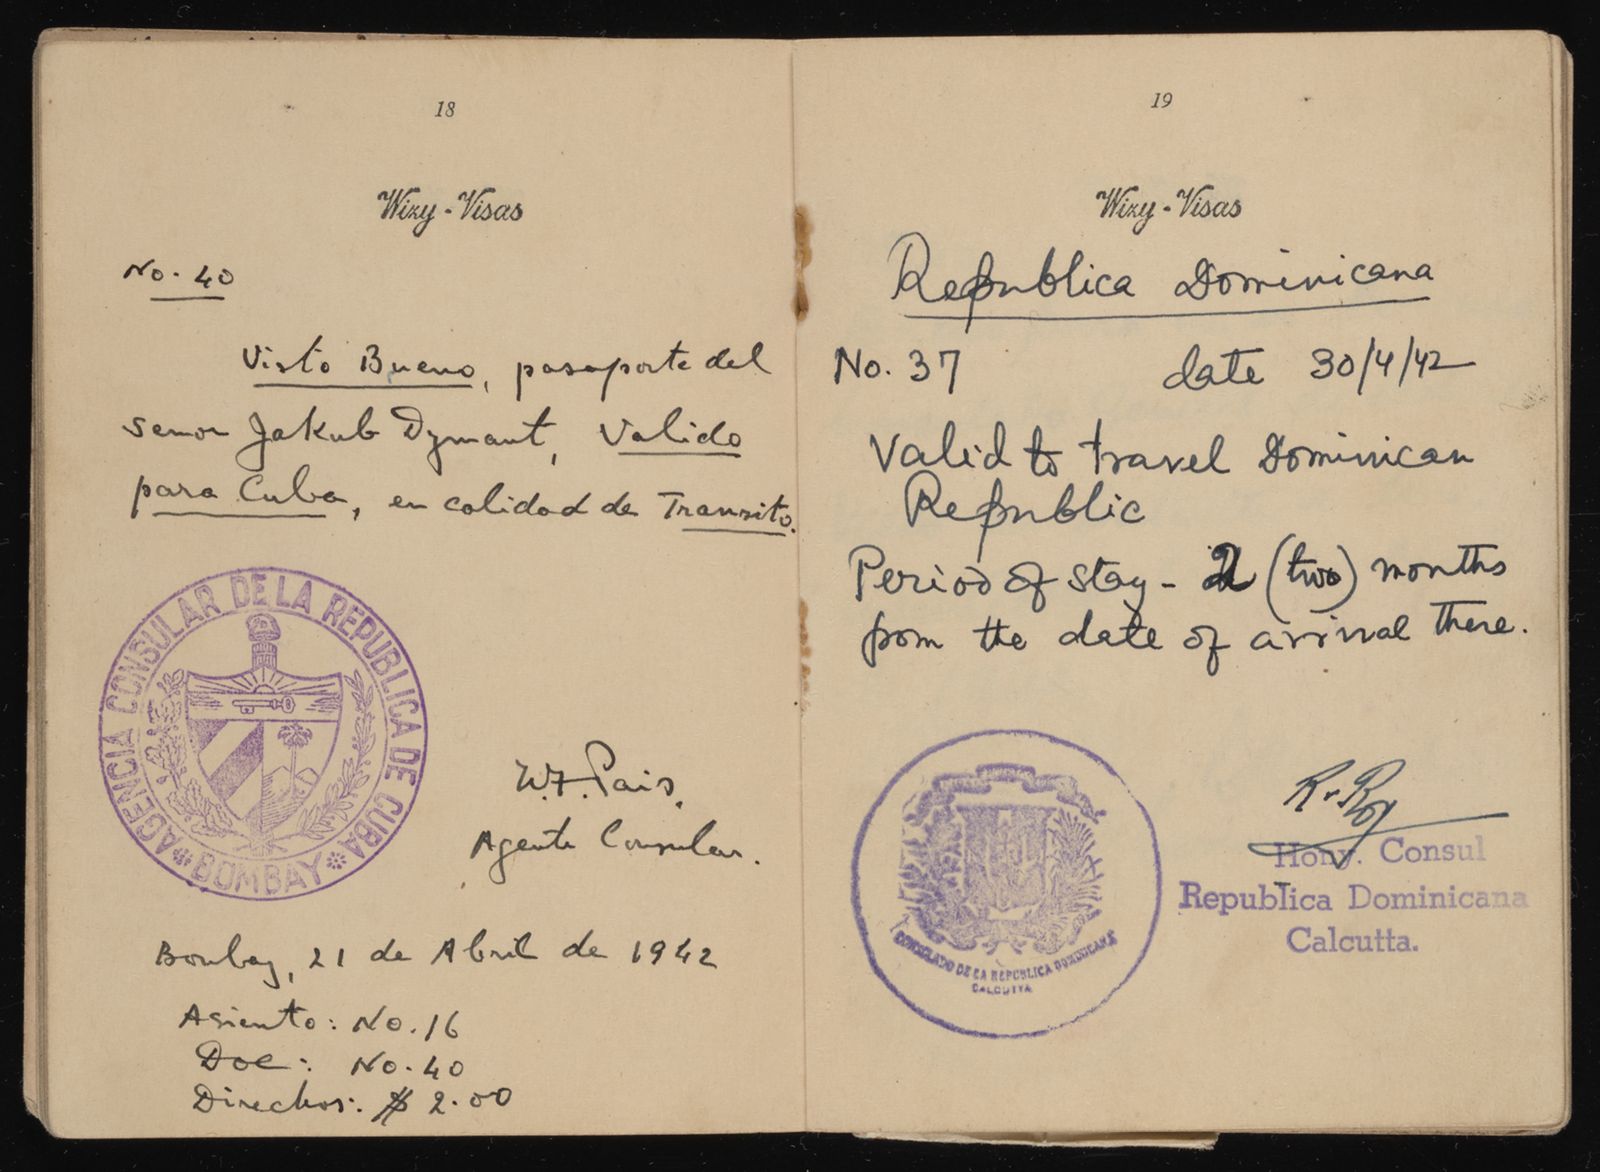 18
Wizy - Visas
No. 40
Visto Bueno, pasaporte del
senor Jakub Dymant, Valido
para Cuba, en calidad de Transito.
AGENCIA CONSULAR DE LA REPUBLICA DE CUBA
BOMBAY
W.F. Pais,
Agente Consular.
Bombay, 21 de Abril de 1942
Asiento: No. 16
Doc: No. 40
Direchos: $ 2.00
19
Wizy - Visas
Republica Dominicana
No. 37 date 30/4/42
Valid to travel Dominican
Republic
Period of stay - 2 (two) months
from the date of arrival there.
CONSULADO DE LA REPUBLICA DOMINICANA
CALCUTTA
R. Roy
Hony. Consul
Republica Dominicana
Calcutta.